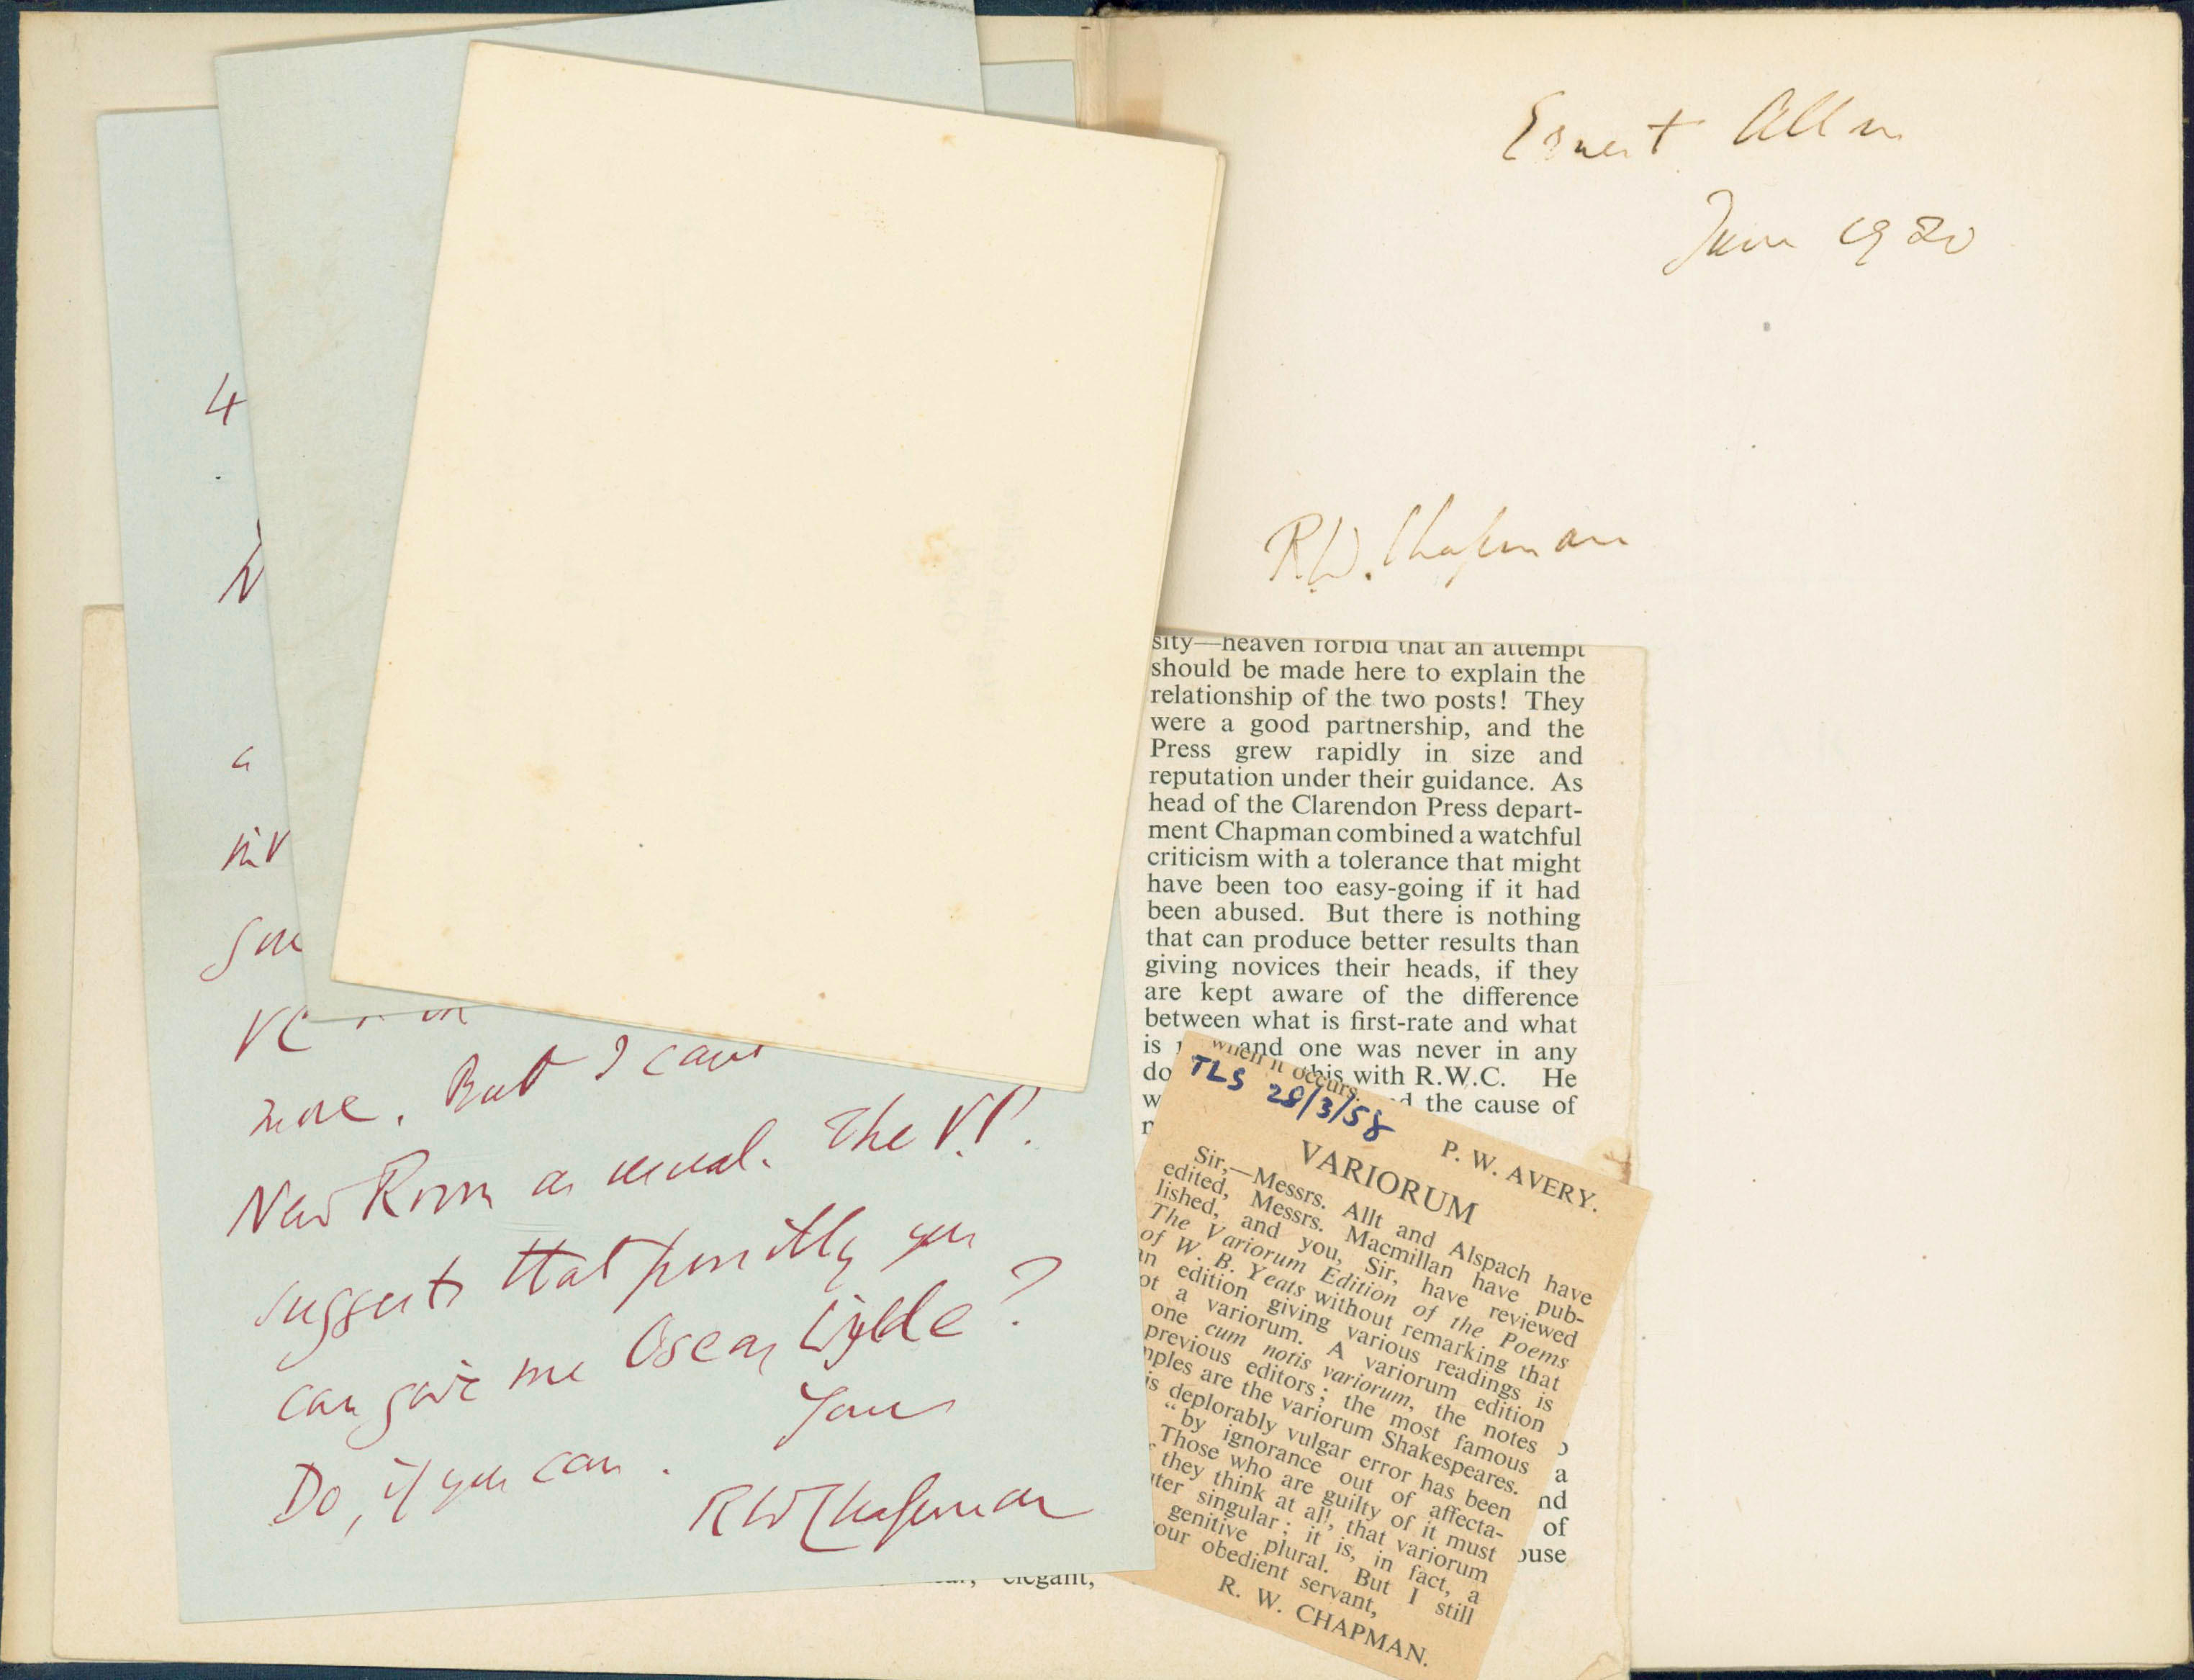 4
a
inv
more. But I can
New Room as usual. The V.P.
suggests that possibly you
can give me Oscar Wilde?
Do, if you can.
Yours
RWChapman
Ernest Allen
June 1920
R.W. Chapman
sity—heaven forbid that an attempt
should be made here to explain the
relationship of the two posts! They
were a good partnership, and the
Press grew rapidly in size and
reputation under their guidance. As
head of the Clarendon Press depart-
ment Chapman combined a watchful
criticism with a tolerance that might
have been too easy-going if it had
been abused. But there is nothing
that can produce better results than
giving novices their heads, if they
are kept aware of the difference
between what is first-rate and what
is and one was never in any
do this with R.W.C. He
w d the cause of
a
nd
of
ouse
elegant,
when it occurs.
TLS 28/3/58
P. W. AVERY.
VARIORUM
Sir,—Messrs. Allt and Alspach have
edited, Messrs. Macmillan have pub-
lished, and you, Sir, have reviewed
The Variorum Edition of the Poems
of W. B. Yeats without remarking that
an edition giving various readings is
ot a variorum. A variorum edition
one cum notis variorum, the notes
previous editors; the most famous
mples are the variorum Shakespeares.
is deplorably vulgar error has been
"by ignorance out of affecta-
Those who are guilty of it must
they think at all, that variorum
uter singular; it is, in fact, a
genitive plural. But I still
our obedient servant,
R. W. CHAPMAN.